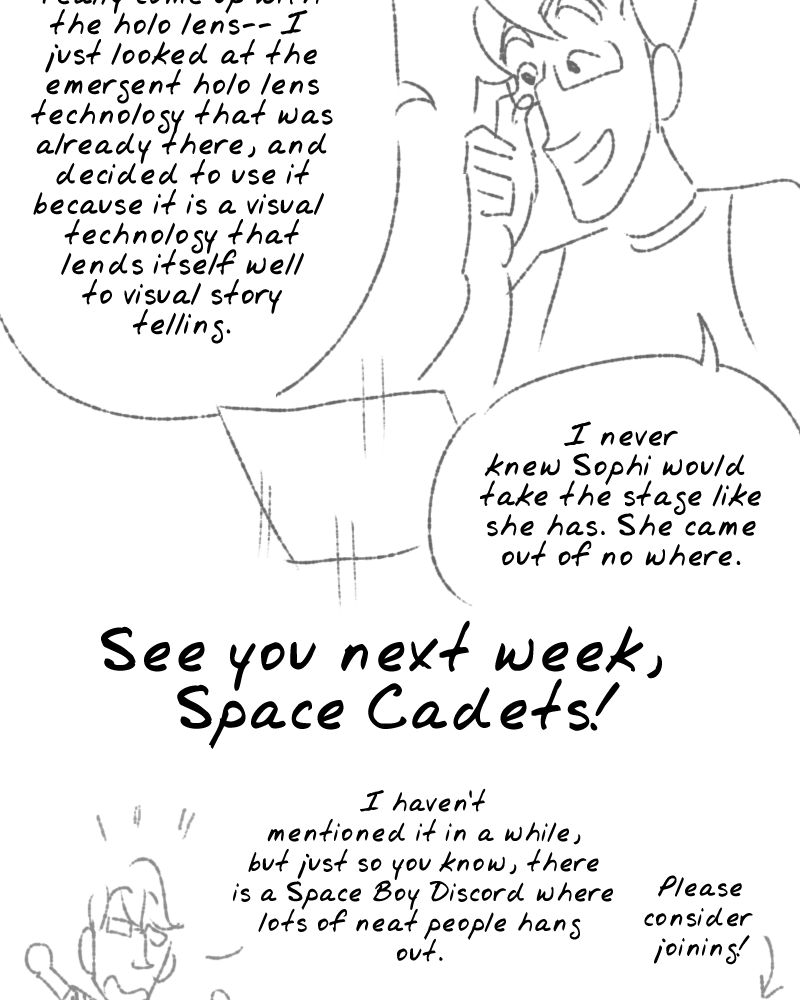 really come up with
the holo lens-- I
just looked at the
emergent holo lens
technology that was
already there, and
decided to use it
because it is a visual
technology that
lends itself well
to visual story
telling.
I never
knew Sophi would
take the stage like
she has. She came
out of no where.
See you next week,
Space Cadets!
I haven't
mentioned it in a while,
but just so you know, there
is a Space Boy Discord where
lots of neat people hang
out.
Please
consider
joining!